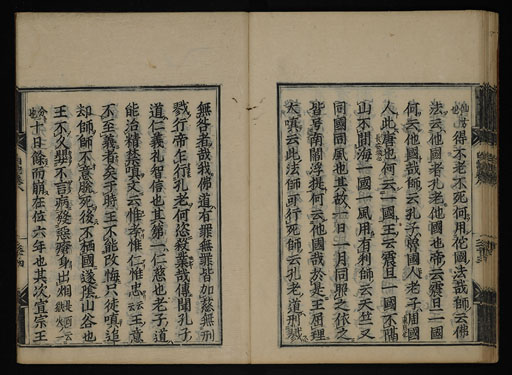 得不老不死何用佗國法哉師云佛
法云他國者孔老他國也帝云震旦一國
何云他國哉師云孔子魯國人老子周國
人此唐也何云一國王云震旦一國不隔
山不間海一國一風用有利師云天竺又
同國同風也其故一日一月同照之依之
皆号南閻浮提何云他國哉於是王屈理
大嗔云此法師可行死師云孔老道刑戮
無咎者哉我佛道有罪無罪皆加慈無刑
戮行帝乍行孔老何恣殺業哉傳聞孔子
道仁義礼智信也其第一仁慈也老子道
能治精 嗔文云惟孝惟仁惟忠云云王意
不至義者矣于時王不能改悔只徒嗔追
却師師不意脫死後不栖國遂隠山谷也
王不久 不言病殘 瘡身出烟
十日餘而崩在位六年也其次宣宗王